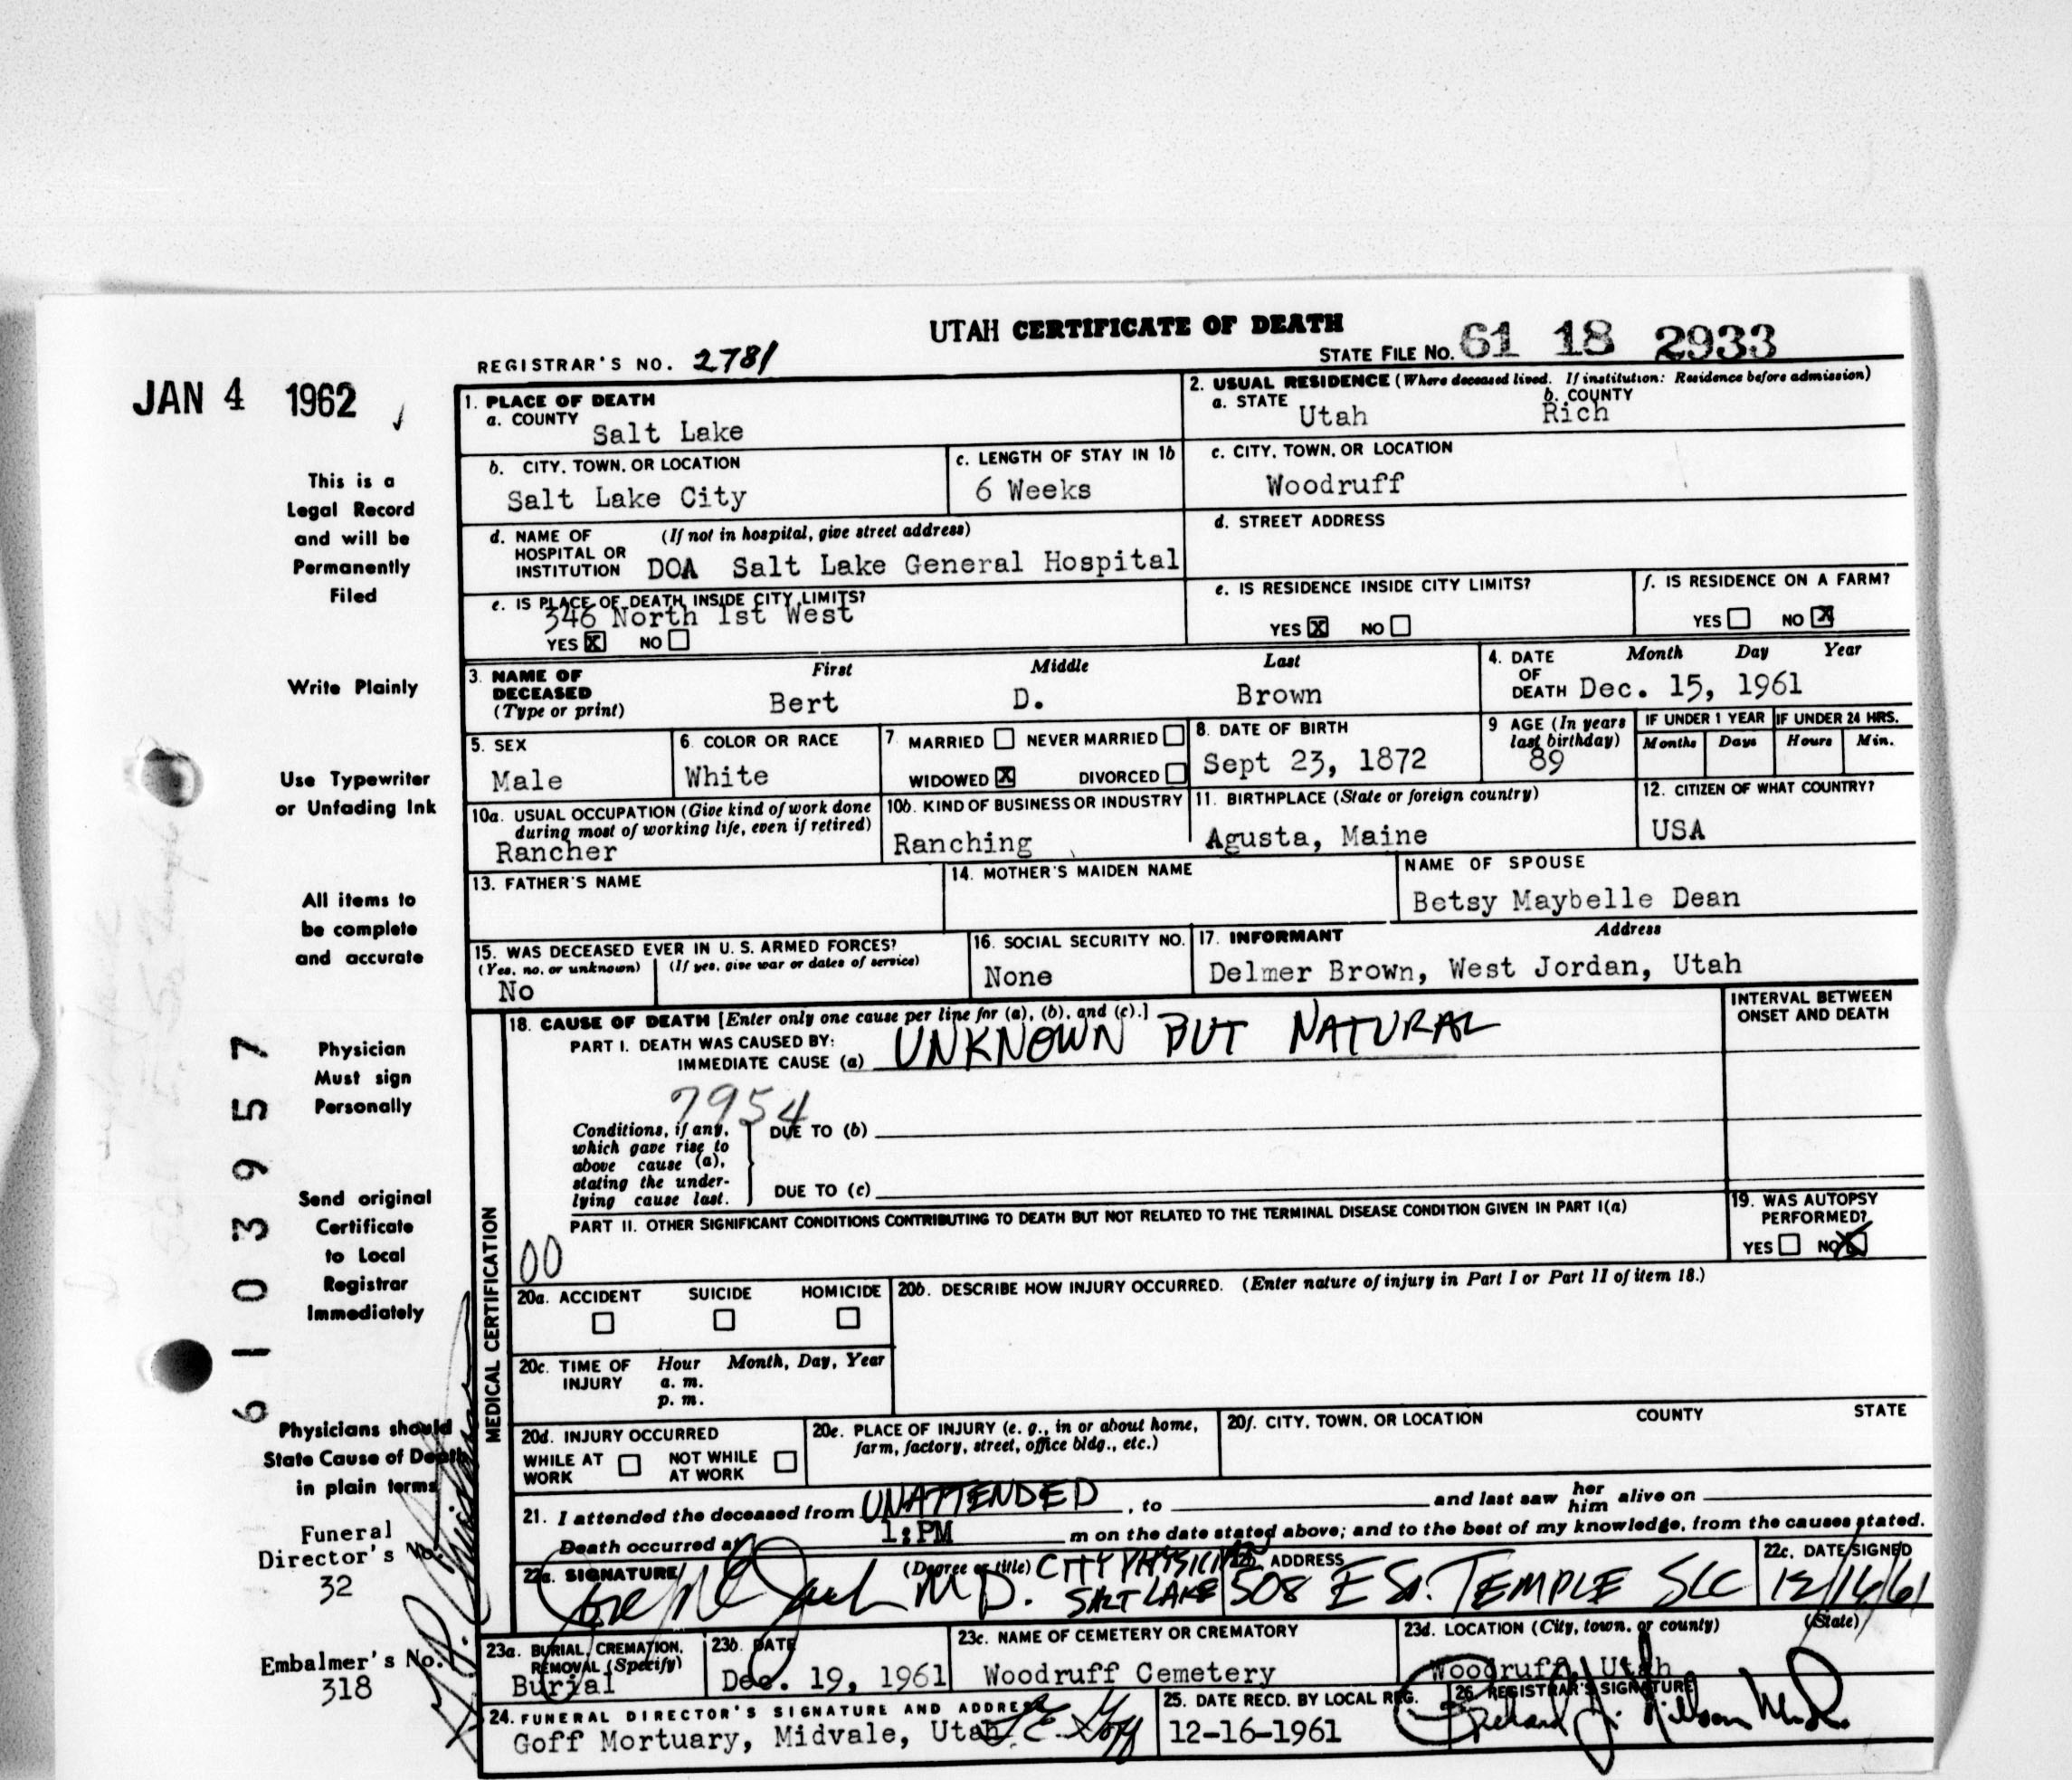 UTAH CERTIFICATE OF DEATH
REGISTRAR'S NO. 2781
STATE FILE NO. 61 18 2933
JAN 4 1962
1. PLACE OF DEATH
a. COUNTY Salt Lake
2. USUAL RESIDENCE (Where deceased lived. If institution: Residence before admission)
a. STATE Utah b. COUNTY Rich
b. CITY, TOWN, OR LOCATION Salt Lake City
c. LENGTH OF STAY IN 1b 6 Weeks
c. CITY, TOWN, OR LOCATION Woodruff
d. NAME OF HOSPITAL OR INSTITUTION (If not in hospital, give street address)
DOA Salt Lake General Hospital
d. STREET ADDRESS
e. IS PLACE OF DEATH INSIDE CITY LIMITS?
346 North 1st West
YES X NO
e. IS RESIDENCE INSIDE CITY LIMITS?
YES X NO
f. IS RESIDENCE ON A FARM?
YES NO X
3. NAME OF DECEASED (Type or print)
First Middle Last
Bert D. Brown
4. DATE OF DEATH Month Day Year
Dec. 15, 1961
5. SEX Male
6. COLOR OR RACE White
7. MARRIED NEVER MARRIED
WIDOWED X DIVORCED
8. DATE OF BIRTH Sept 23, 1872
9 AGE (In years last birthday) 89
IF UNDER 1 YEAR Months Days
IF UNDER 24 HRS. Hours Min.
10a. USUAL OCCUPATION (Give kind of work done during most of working life, even if retired)
Rancher
10b. KIND OF BUSINESS OR INDUSTRY Ranching
11. BIRTHPLACE (State or foreign country) Agusta, Maine
12. CITIZEN OF WHAT COUNTRY? USA
13. FATHER'S NAME
14. MOTHER'S MAIDEN NAME
NAME OF SPOUSE
Betsy Maybelle Dean
15. WAS DECEASED EVER IN U. S. ARMED FORCES?
(Yes, no, or unknown) (If yes, give war or dates of service)
No
16. SOCIAL SECURITY NO. None
17. INFORMANT Address
Delmer Brown, West Jordan, Utah
MEDICAL CERTIFICATION
18. CAUSE OF DEATH [Enter only one cause per line for (a), (b), and (c).]
INTERVAL BETWEEN ONSET AND DEATH
PART I. DEATH WAS CAUSED BY:
IMMEDIATE CAUSE (a) UNKNOWN BUT NATURAL
7954
Conditions, if any, which gave rise to above cause (a), stating the underlying cause last.
DUE TO (b)
DUE TO (c)
PART II. OTHER SIGNIFICANT CONDITIONS CONTRIBUTING TO DEATH BUT NOT RELATED TO THE TERMINAL DISEASE CONDITION GIVEN IN PART I(a)
00
19. WAS AUTOPSY PERFORMED?
YES NO X
20a. ACCIDENT SUICIDE HOMICIDE
20b. DESCRIBE HOW INJURY OCCURRED. (Enter nature of injury in Part I or Part II of item 18.)
20c. TIME OF INJURY Hour Month, Day, Year
a. m.
p. m.
20d. INJURY OCCURRED
WHILE AT WORK NOT WHILE AT WORK
20e. PLACE OF INJURY (e. g., in or about home, farm, factory, street, office bldg., etc.)
20f. CITY, TOWN, OR LOCATION COUNTY STATE
21. I attended the deceased from UNATTENDED, to and last saw her him alive on
Death occurred at 1:PM m on the date stated above; and to the best of my knowledge, from the causes stated.
22a. SIGNATURE (Degree or title)
M D. CITY PHYSICIAN SALT LAKE
22b. ADDRESS 508 E So. TEMPLE SLC
22c. DATE SIGNED 12/16/61
23a. BURIAL, CREMATION, REMOVAL (Specify) Burial
23b. DATE Dec. 19, 1961
23c. NAME OF CEMETERY OR CREMATORY Woodruff Cemetery
23d. LOCATION (City, town, or county) (State)
Woodruff, Utah
24. FUNERAL DIRECTOR'S SIGNATURE AND ADDRESS
Goff Mortuary, Midvale, Utah
25. DATE RECD. BY LOCAL REG. 12-16-1961
26. REGISTRAR'S SIGNATURE
This is a
Legal Record
and will be
Permanently
Filed
Write Plainly
Use Typewriter
or Unfading Ink
All items to
be complete
and accurate
Physician
Must sign
Personally
Send original
Certificate
to Local
Registrar
Immediately
Physicians should
State Cause of Death
in plain terms
Funeral
Director's No.
32
Embalmer's No.
318
61039 57